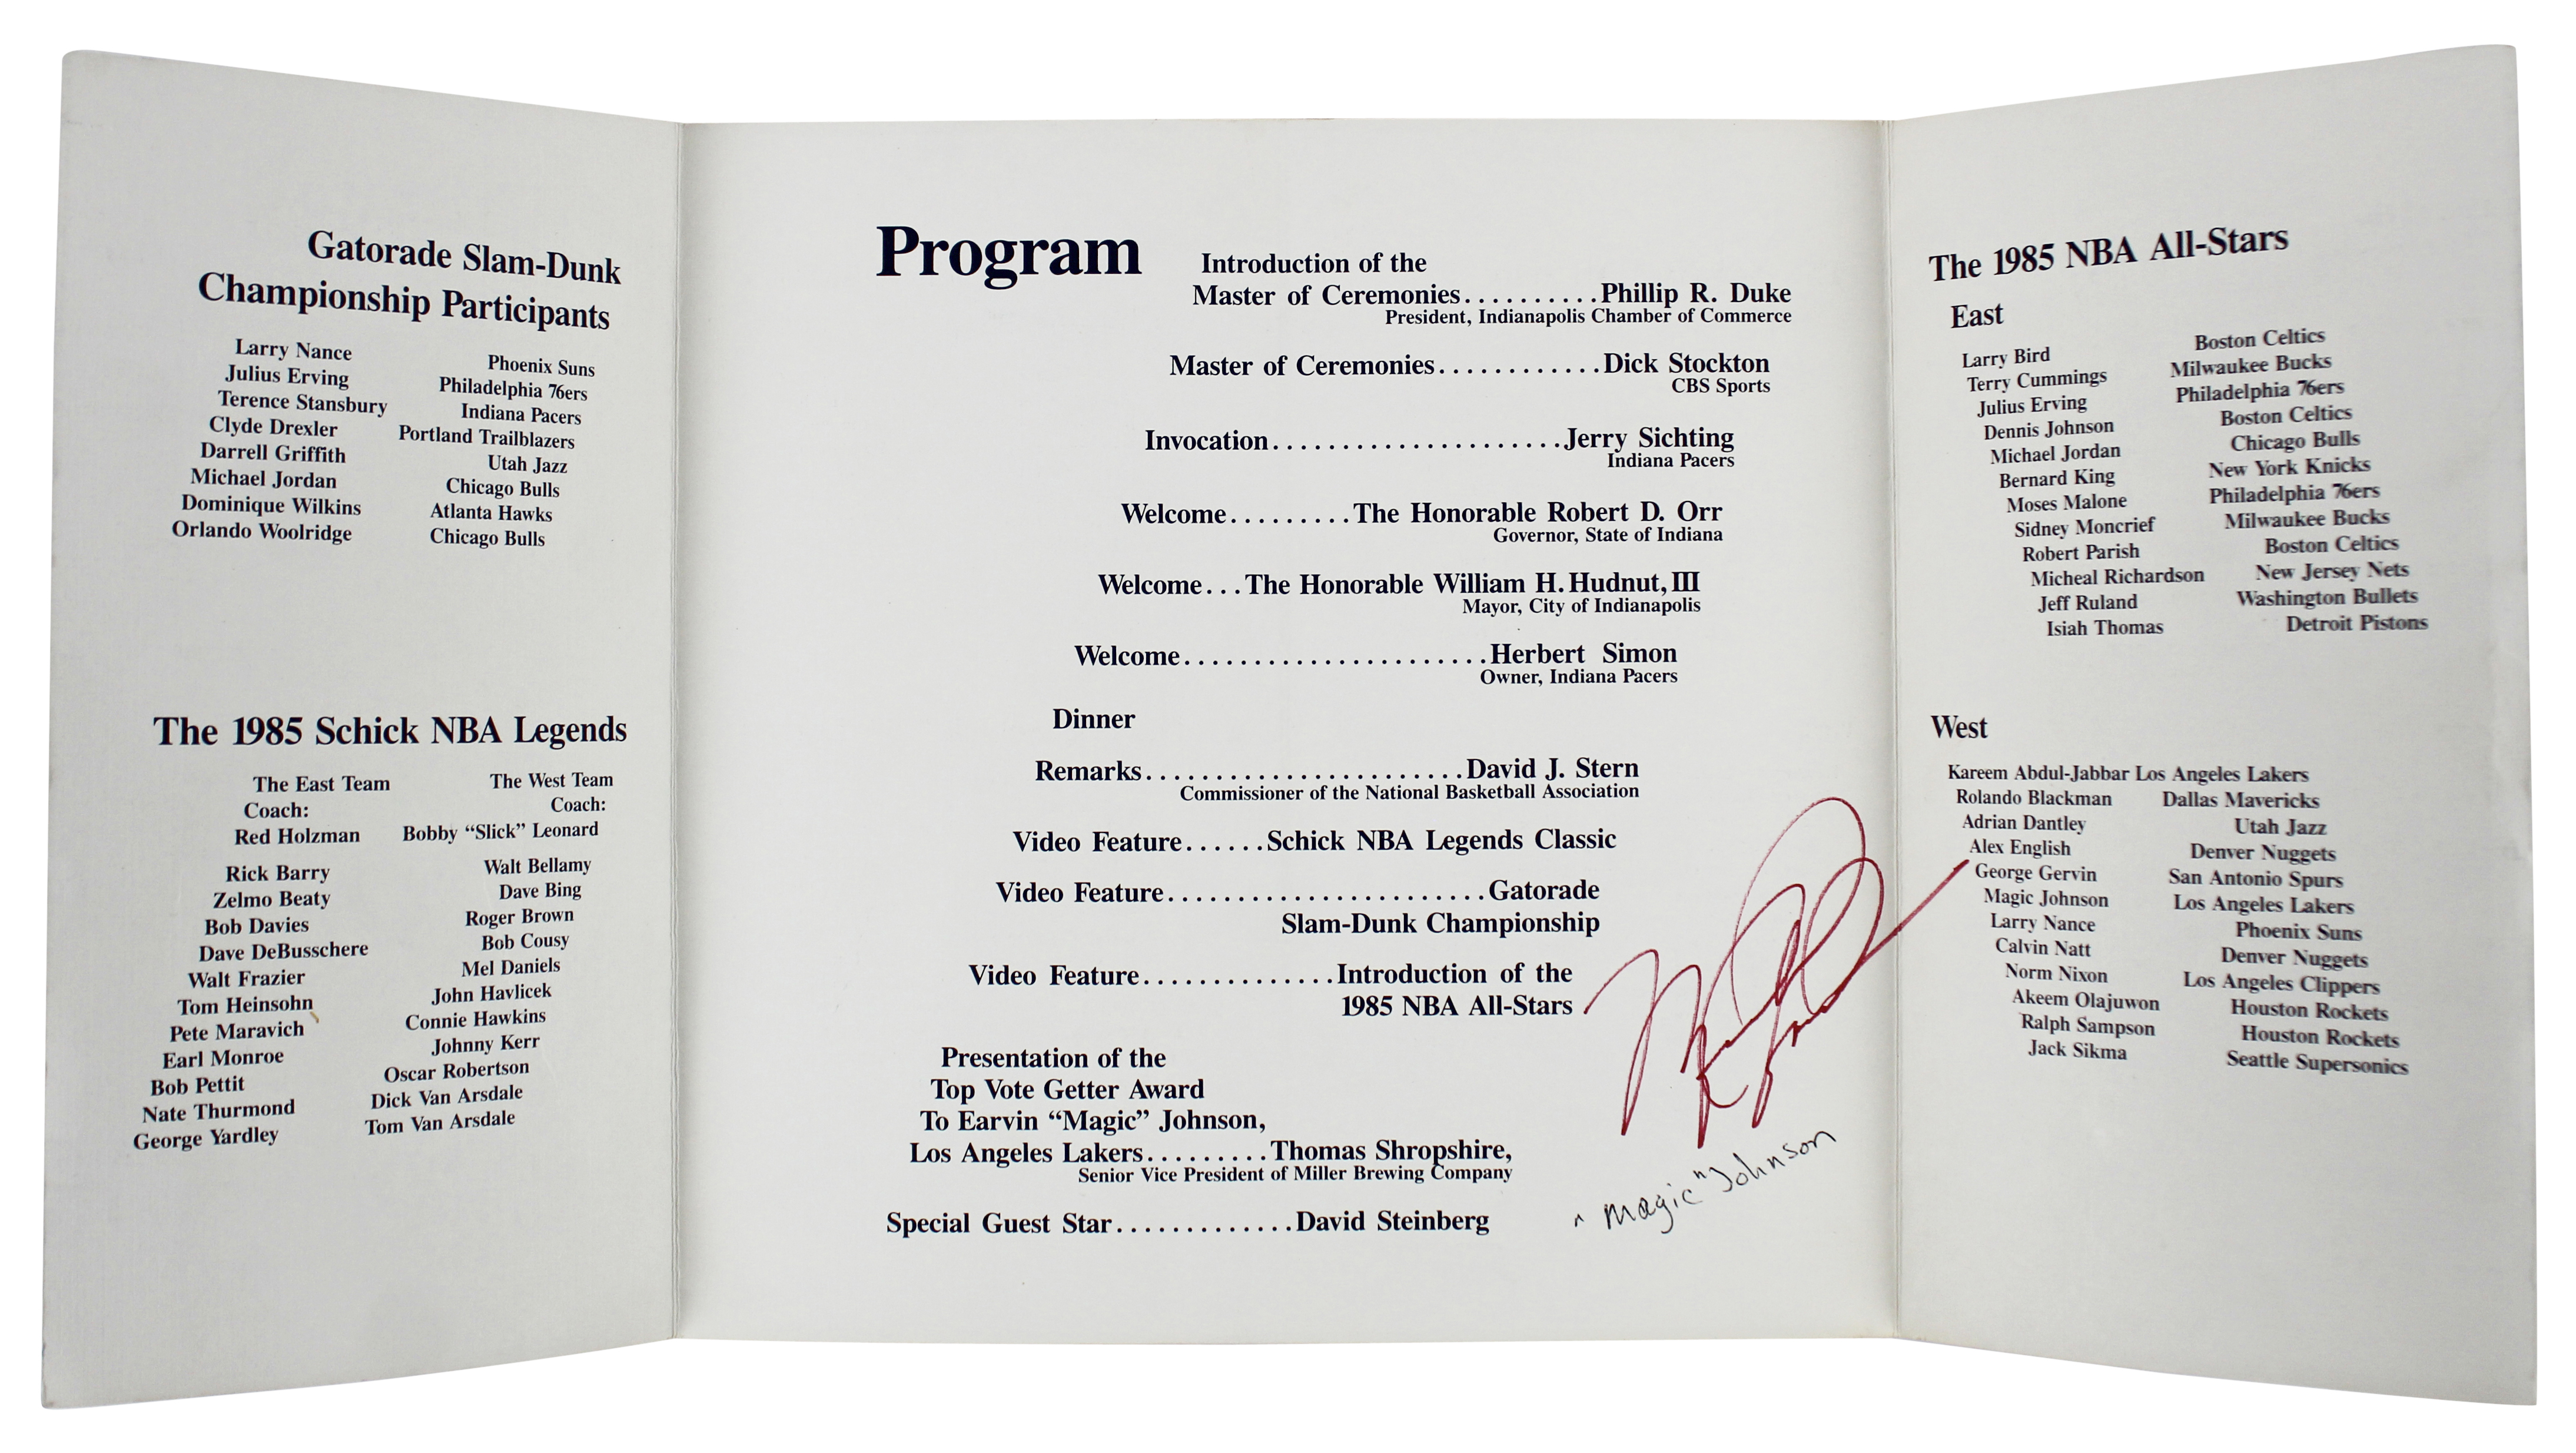 Gatorade Slam-Dunk
Championship Participants
Larry Nance Phoenix Suns
Julius Erving Philadelphia 76ers
Terence Stansbury Indiana Pacers
Clyde Drexler Portland Trailblazers
Darrell Griffith Utah Jazz
Michael Jordan Chicago Bulls
Dominique Wilkins Atlanta Hawks
Orlando Woolridge Chicago Bulls
The 1985 Schick NBA Legends
The East Team The West Team
Coach: Coach:
Red Holzman Bobby “Slick” Leonard
Rick Barry Walt Bellamy
Zelmo Beaty Dave Bing
Bob Davies Roger Brown
Dave DeBusschere Bob Cousy
Walt Frazier Mel Daniels
Tom Heinsohn John Havlicek
Pete Maravich Connie Hawkins
Earl Monroe Johnny Kerr
Bob Pettit Oscar Robertson
Nate Thurmond Dick Van Arsdale
George Yardley Tom Van Arsdale
Program
Introduction of the
Master of Ceremonies..........Phillip R. Duke
President, Indianapolis Chamber of Commerce
Master of Ceremonies............Dick Stockton
CBS Sports
Invocation.....................Jerry Sichting
Indiana Pacers
Welcome.........The Honorable Robert D. Orr
Governor, State of Indiana
Welcome...The Honorable William H. Hudnut, III
Mayor, City of Indianapolis
Welcome......................Herbert Simon
Owner, Indiana Pacers
Dinner
Remarks.......................David J. Stern
Commissioner of the National Basketball Association
Video Feature......Schick NBA Legends Classic
Video Feature.......................Gatorade
Slam-Dunk Championship
Video Feature..............Introduction of the
1985 NBA All-Stars
Presentation of the
Top Vote Getter Award
To Earvin “Magic” Johnson,
Los Angeles Lakers.........Thomas Shropshire,
Senior Vice President of Miller Brewing Company
Special Guest Star.............David Steinberg
"Magic" Johnson
The 1985 NBA All-Stars
East
Larry Bird Boston Celtics
Terry Cummings Milwaukee Bucks
Julius Erving Philadelphia 76ers
Dennis Johnson Boston Celtics
Michael Jordan Chicago Bulls
Bernard King New York Knicks
Moses Malone Philadelphia 76ers
Sidney Moncrief Milwaukee Bucks
Robert Parish Boston Celtics
Micheal Richardson New Jersey Nets
Jeff Ruland Washington Bullets
Isiah Thomas Detroit Pistons
West
Kareem Abdul-Jabbar Los Angeles Lakers
Rolando Blackman Dallas Mavericks
Adrian Dantley Utah Jazz
Alex English Denver Nuggets
George Gervin San Antonio Spurs
Magic Johnson Los Angeles Lakers
Larry Nance Phoenix Suns
Calvin Natt Denver Nuggets
Norm Nixon Los Angeles Clippers
Akeem Olajuwon Houston Rockets
Ralph Sampson Houston Rockets
Jack Sikma Seattle Supersonics